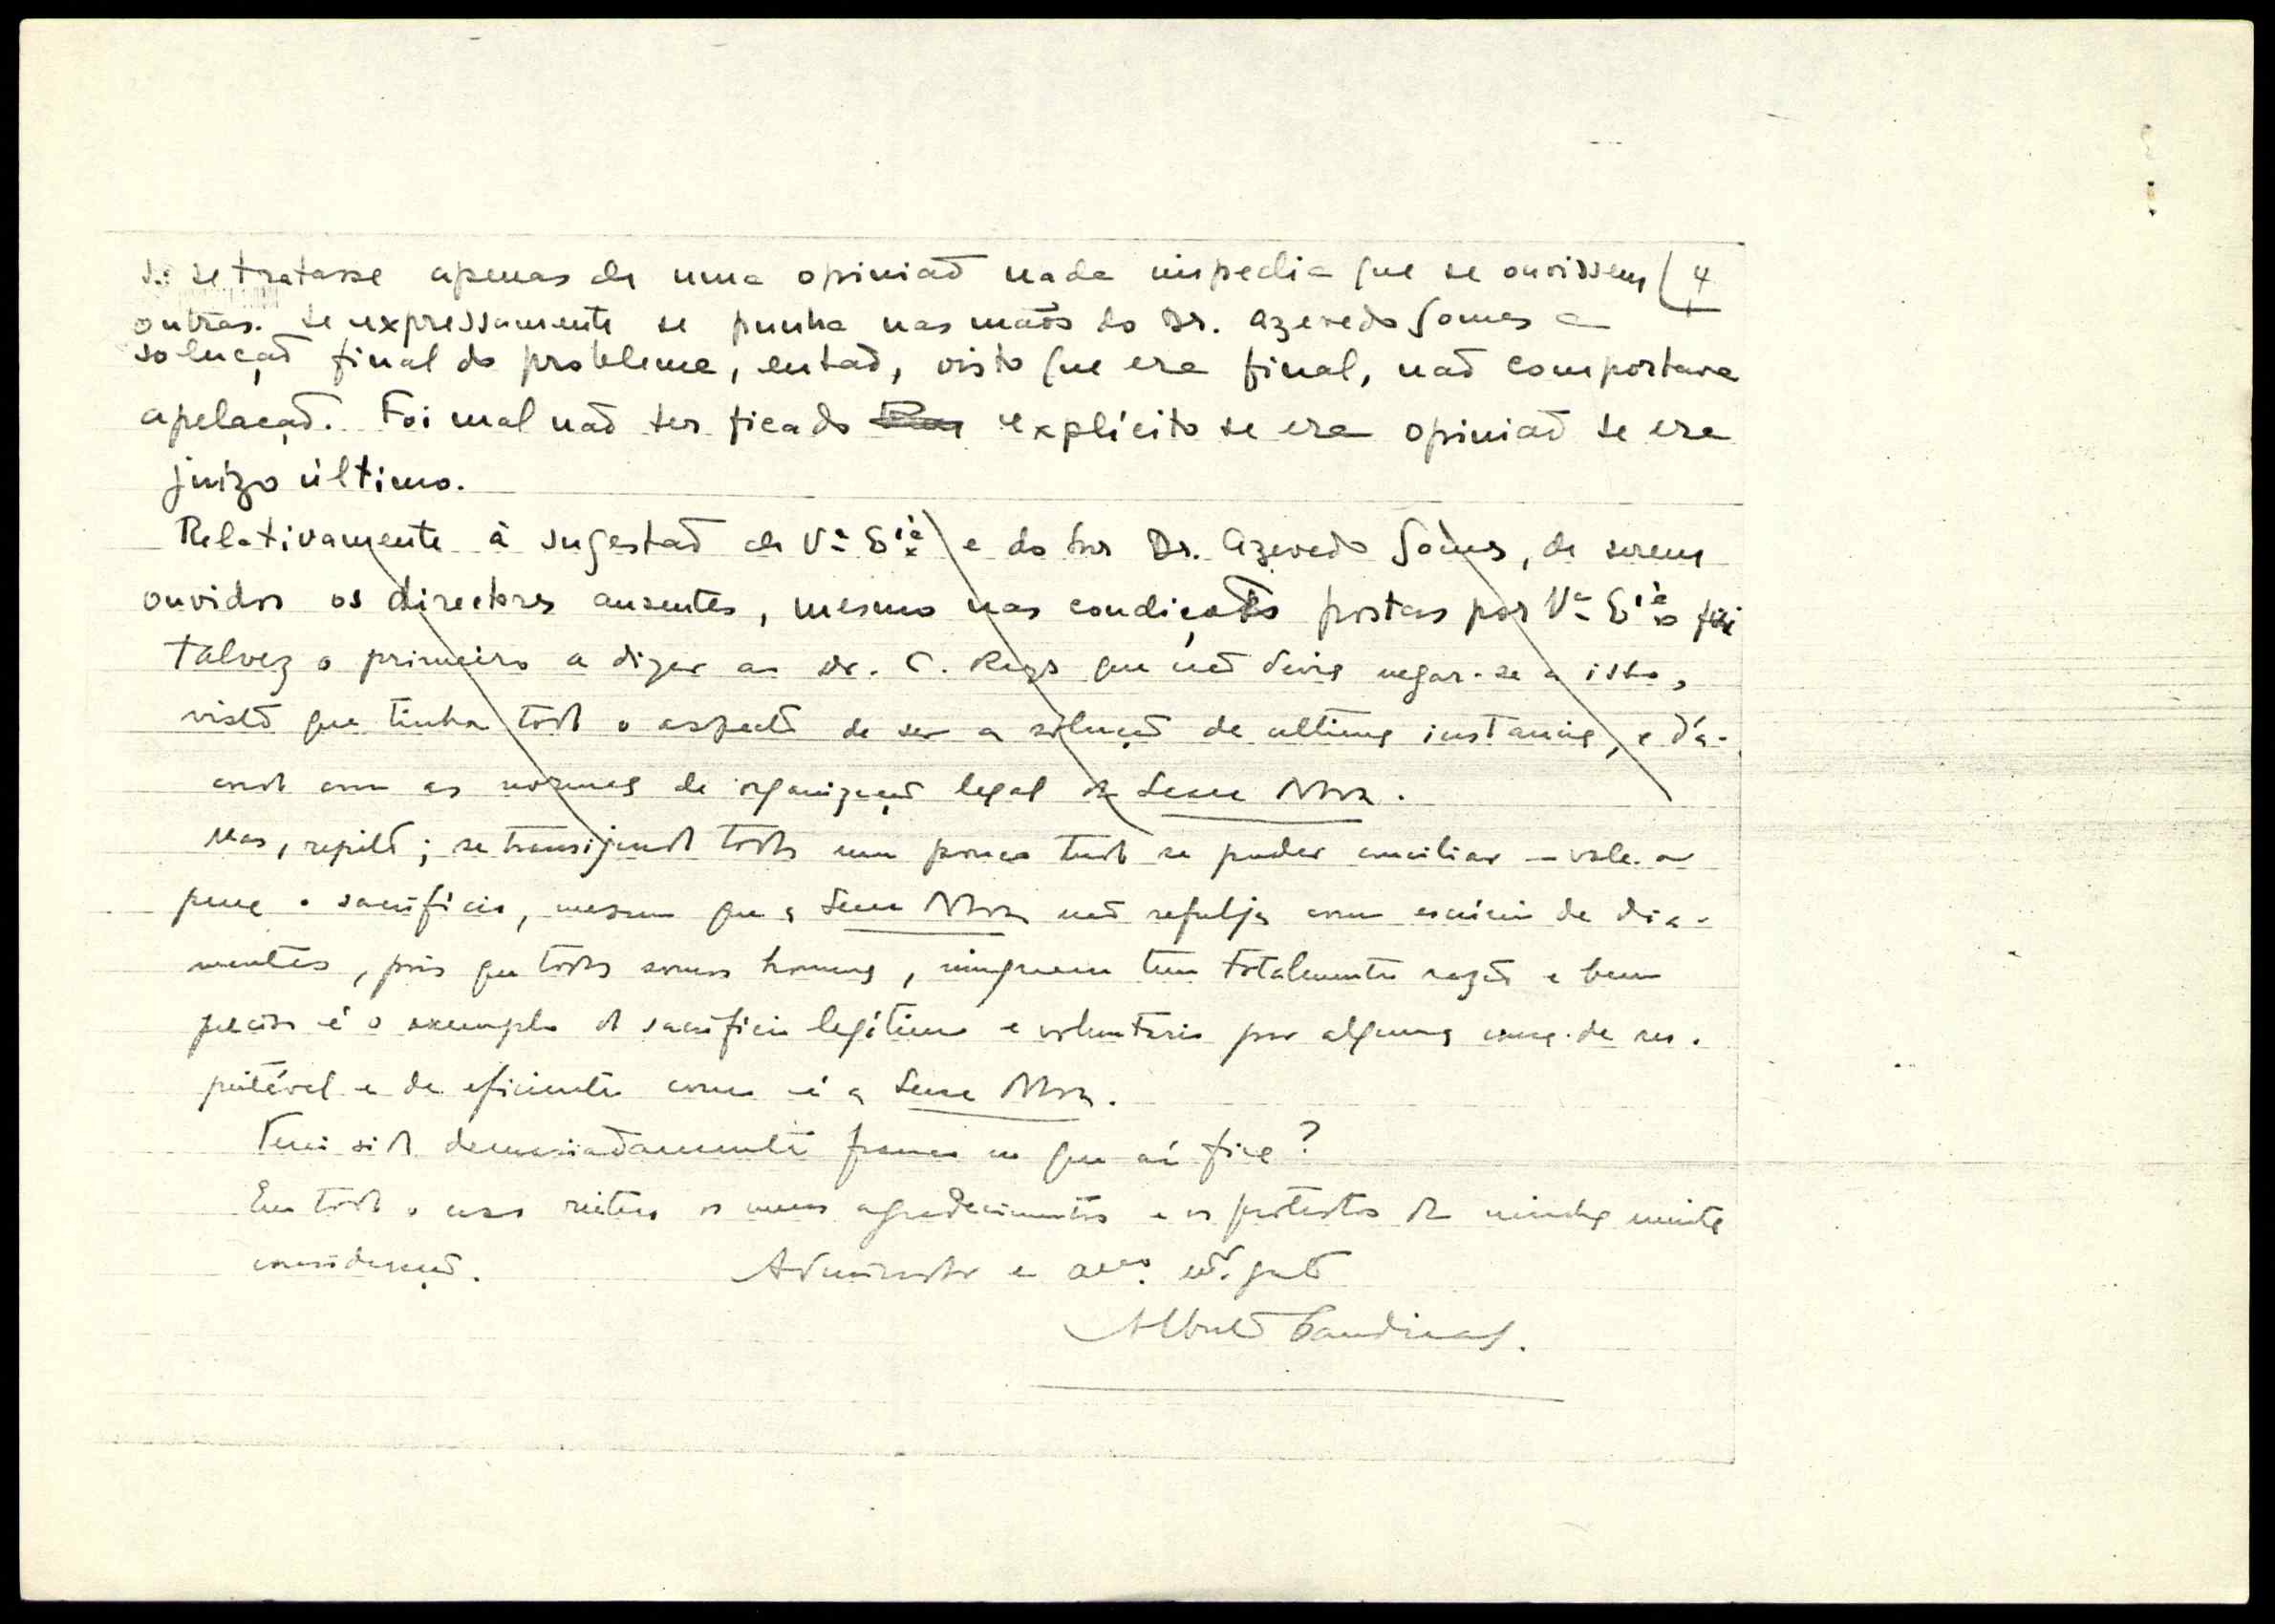 Se se tratasse apenas de uma opinião nada impedia que se ouvissem 4
outras. Se expressamente se punha nas mãos do Dr. Azevedo Gomes a
solução final do probleme, então, visto que era final, não comportava
apelação. Foi mal não ter ficado explícito se era opinião se era
juizo último.
Relativamente à sugestão de Vª Exª e do Snr Dr. Azevedo Gomes, de serem
ouvidos os directores ausentes, mesmo nas condições postas por Vª Exª fui
talvez o primeiro a dizer ao Dr. C. Reys que não devia negar-se a isso,
visto que tinha todo o aspecto de ser a solução de ultima instancia, e d'a-
cordo com as normas de organização legal da Seara Nova.
Mas, repito; se transijindo todos um pouco tudo se puder conciliar — vale a
pena o sacrificio, mesmo que a Seara Nova não refulja como escrínio de dia-
mantes, pois que todos somos homens, ninguem tem totalmente razão e bem
preciso é o exemplo do sacrificio legítimo e voluntario por alguma coisa de res-
peitável e de eficiente como é a Seara Nova.
Terei sido demasiadamente franco no que aí fica?
Em todo o caso reitero os meus agradecimentos e os protestos da minha muita
consideração. Admirador e